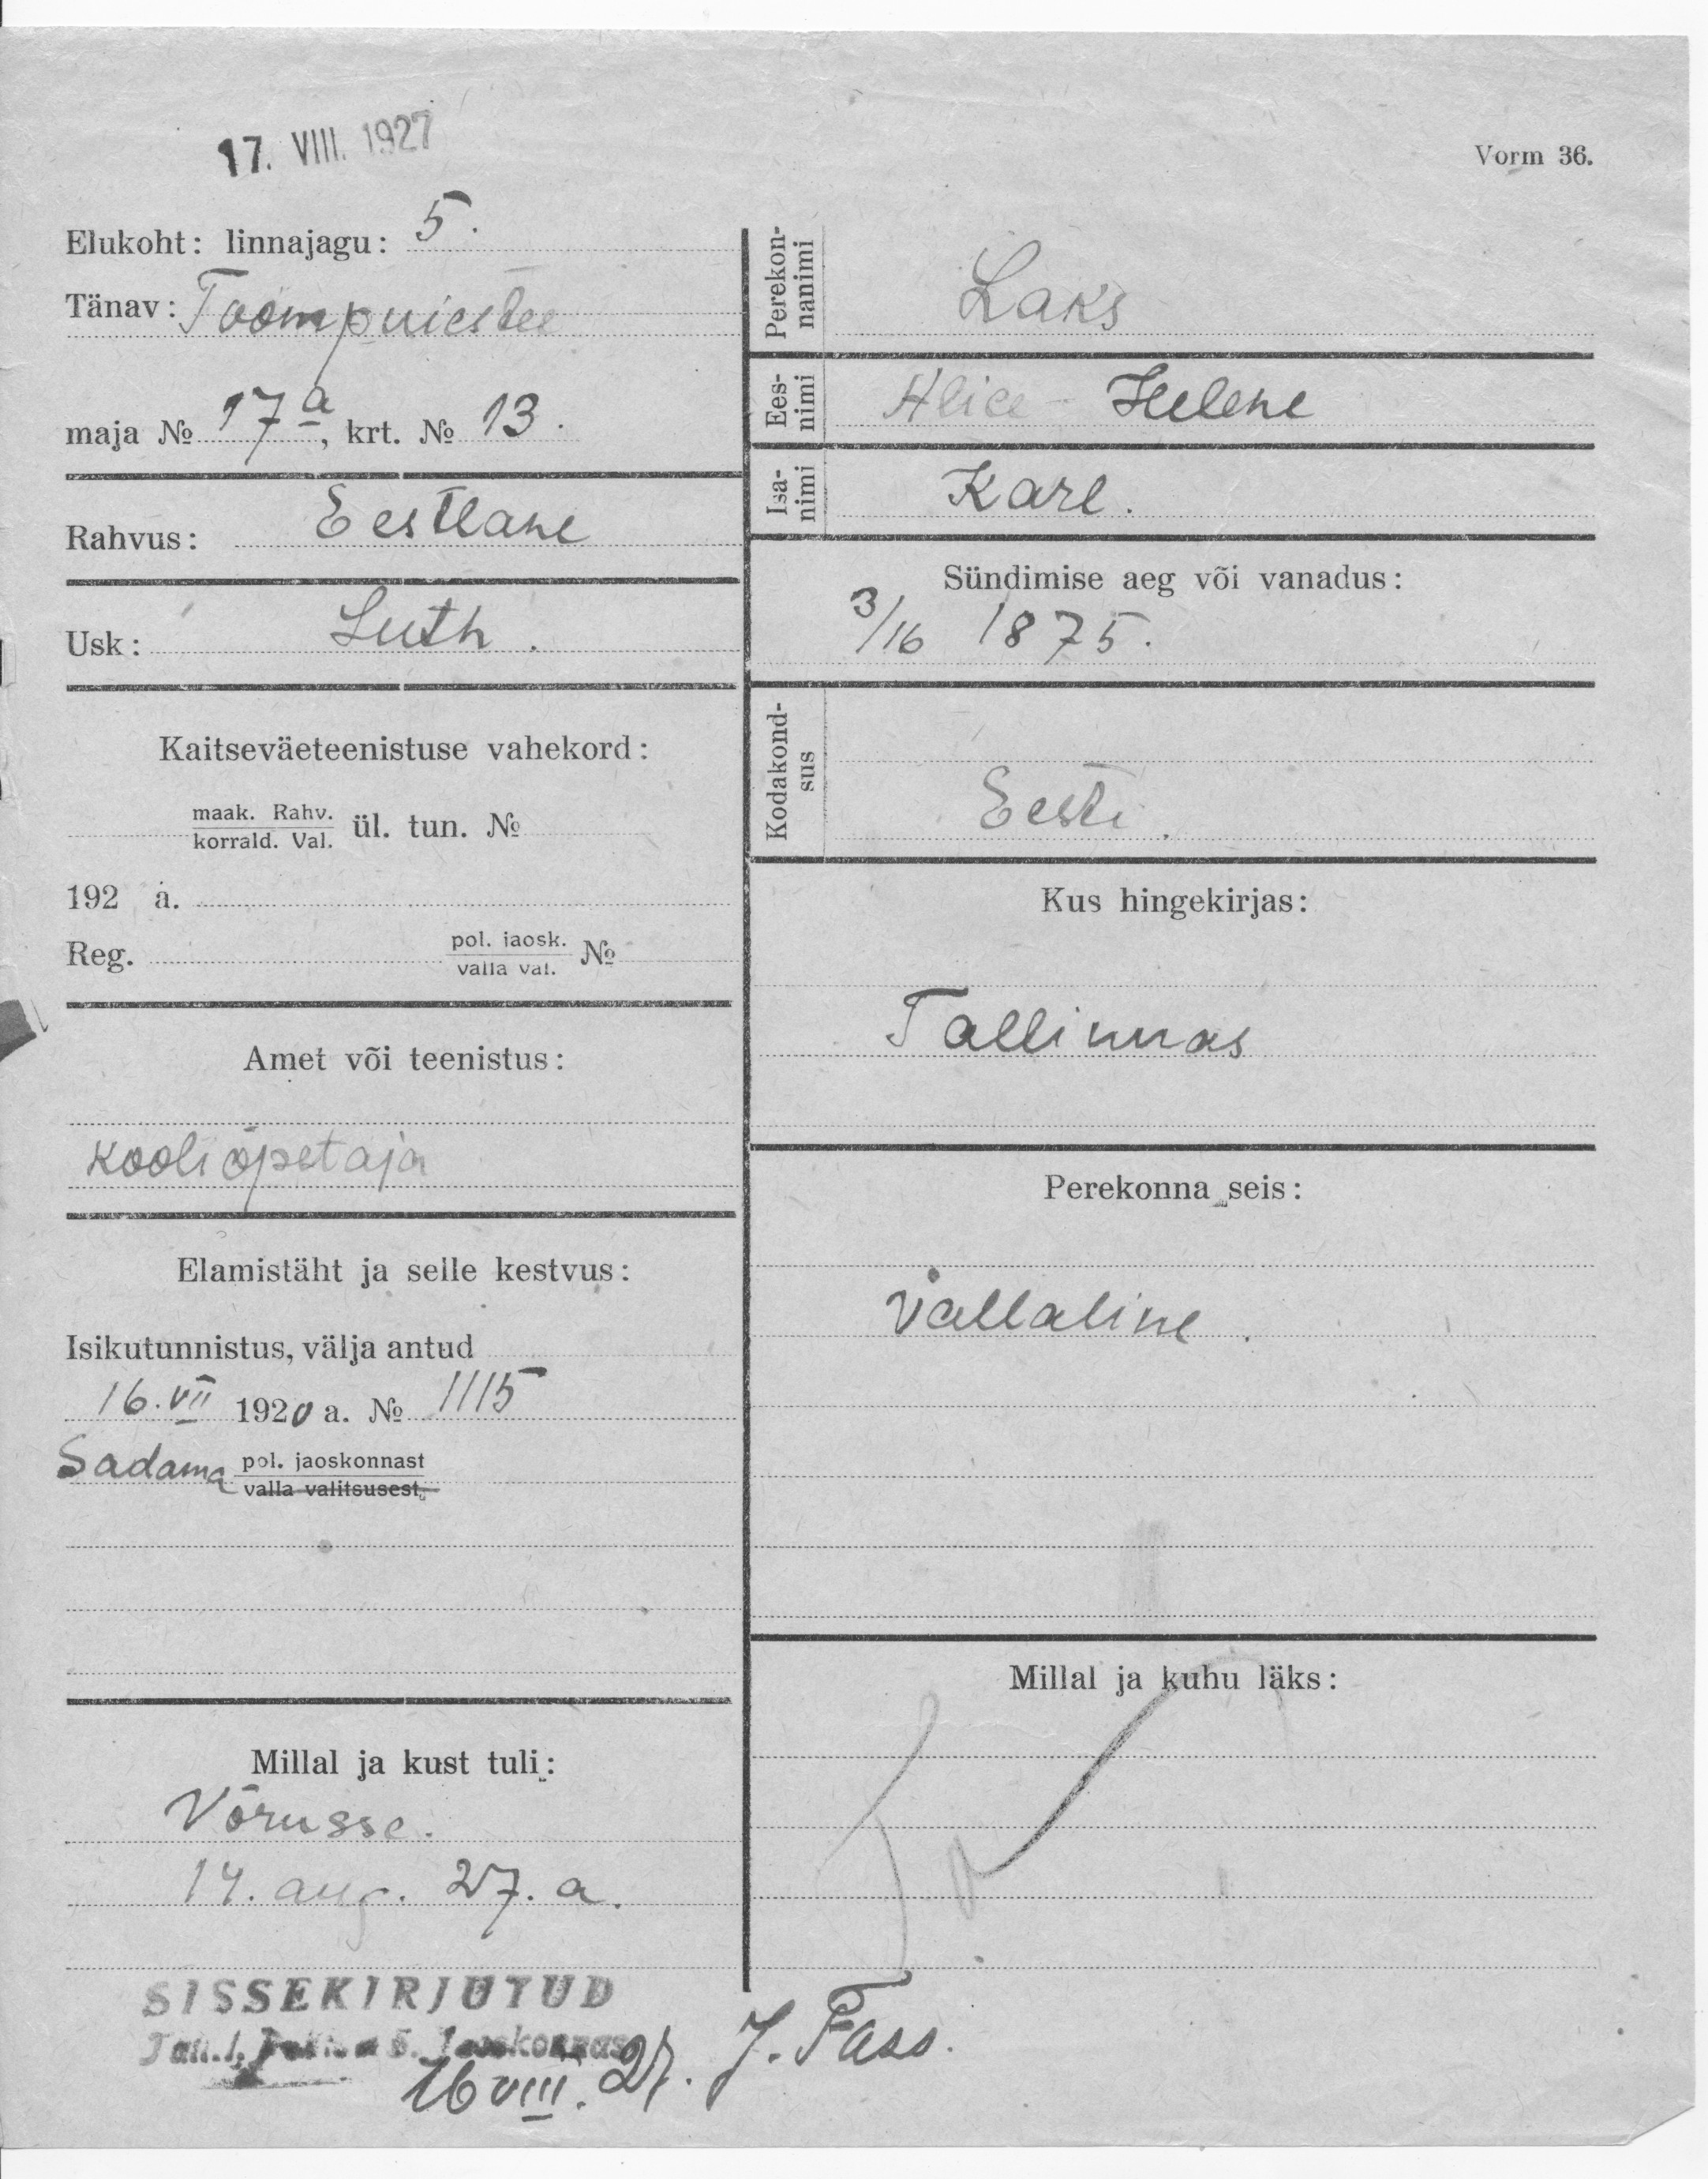 17. VIII. 1927
Vorm 36.
Elukoht: linnajagu: 5.
Tänav: Toompuiestee
maja № 17a, krt. № 13.
Rahvus: Eestlane
Usk: Luth.
Kaitseväeteenistuse vahekord:
maak. Rahv.
korrald. Val. ül. tun. №
192 a.
Reg. pol. jaosk.
valla val. №
Amet või teenistus:
kooliõpetaja
Elamistäht ja selle kestvus:
Isikutunnistus, välja antud
16. VII 1920 a. № 1115
Sadama pol. jaoskonnast
valla valitsusest
Millal ja kust tuli:
Võrusse.
14. aug. 27. a.
SISSEKIRJUTUD
16 VIII. 27. J. Fass.
Perekon-
nanimi
Laks
Ees-
nimi
Alice-Helene
Isa-
nimi
Karl.
Sündimise aeg või vanadus:
3/16 1875.
Kodakond-
sus
Eesti.
Kus hingekirjas:
Tallinnas
Perekonna seis:
Vallaline.
Millal ja kuhu läks: